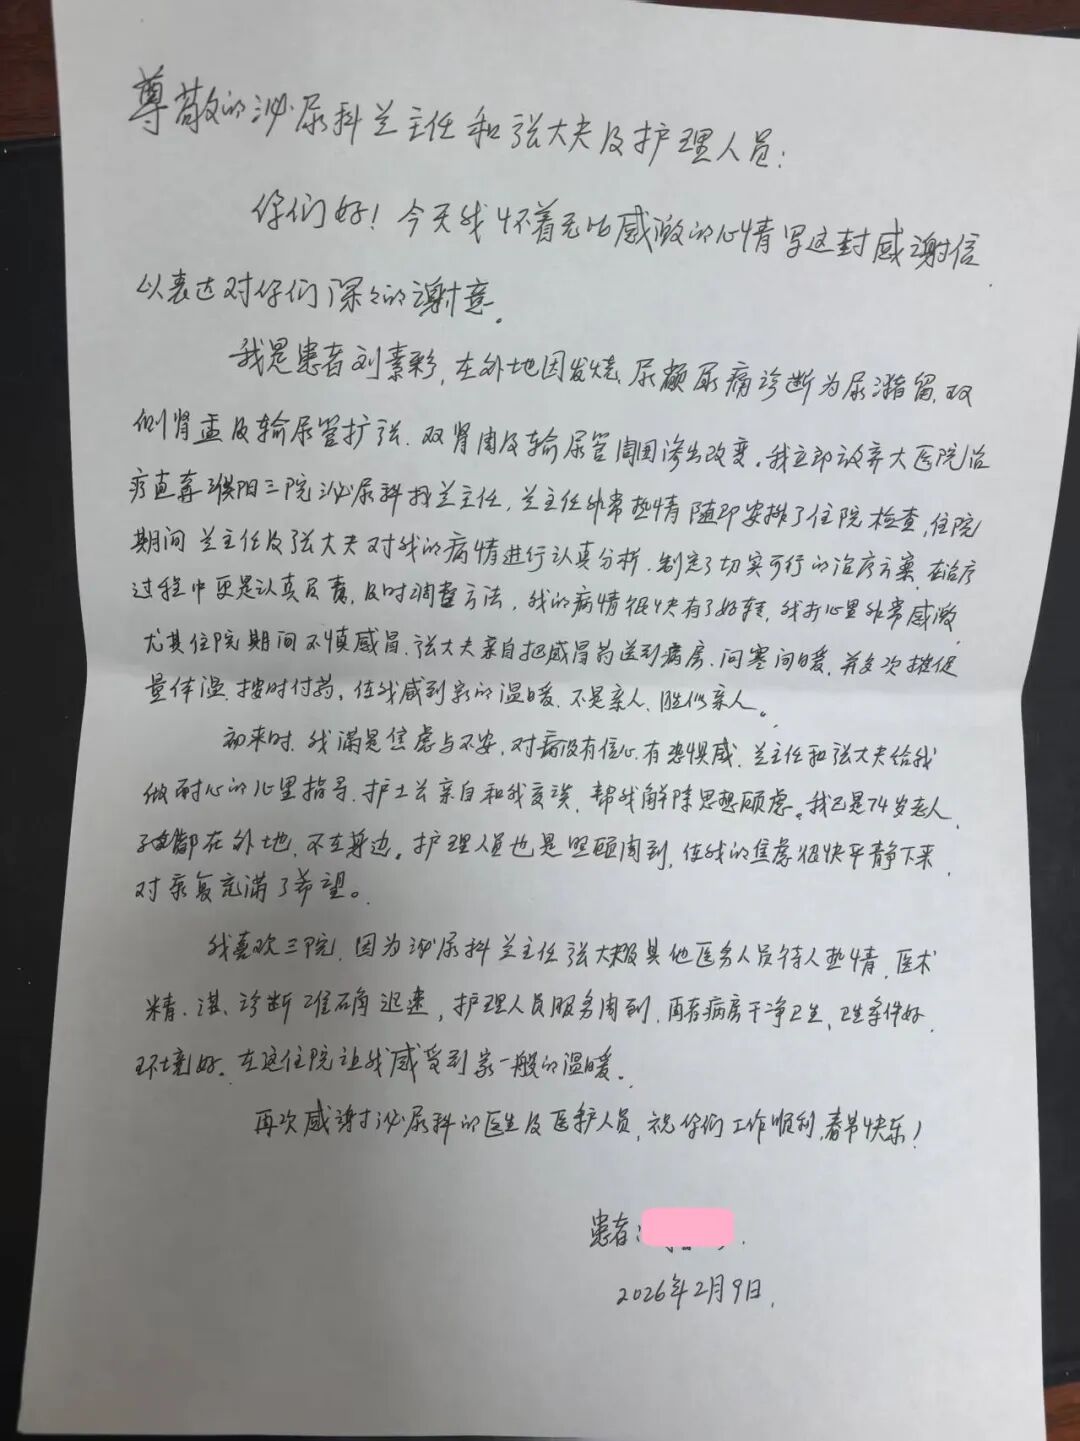 尊敬的泌尿科兰主任和张大夫及护理人员：
你们好！今天我怀着无比感激的心情写这封感谢信
以表达对你们深々的谢意。
我是患者刘素彩，在外地因发烧尿频尿痛诊断为尿潴留，双
侧肾盂及输尿管扩张，双肾周及输尿管周围渗出改变。我立即放弃大医院治
疗直奔濮阳三院泌尿科找兰主任，兰主任非常热情随即安排了住院检查，住院
期间兰主任及张大夫对我的病情进行认真分析，制定了切实可行的治疗方案，在治疗
过程中更是认真负责，及时调整方法，我的病情很快有了好转，我打心里非常感激，
尤其住院期间不慎感冒，张大夫亲自把感冒药送到病房，问寒问暖，并多次催促
量体温，按时付药，使我感到家的温暖，不是亲人，胜似亲人。
初来时，我满是焦虑与不安，对病没有信心，有恐惧感，兰主任和张大夫给我
做耐心的心里指导，护士长亲自和我交谈，帮我解除思想顾虑。我已是74岁老人，
子女都在外地，不在身边。护理人员也是照顾周到，使我的焦虑很快平静下来，
对康复充满了希望。
我喜欢三院，因为泌尿科兰主任张大夫及其他医务人员待人热情，医术
精湛，诊断准确迅速，护理人员服务周到，再有病房干净卫生，卫生条件好，
环境好。在这住院让我感受到家一般的温暖。
再次感谢泌尿科的医生及医护人员，祝你们工作顺利，春节快乐！
患者：
2026年2月9日